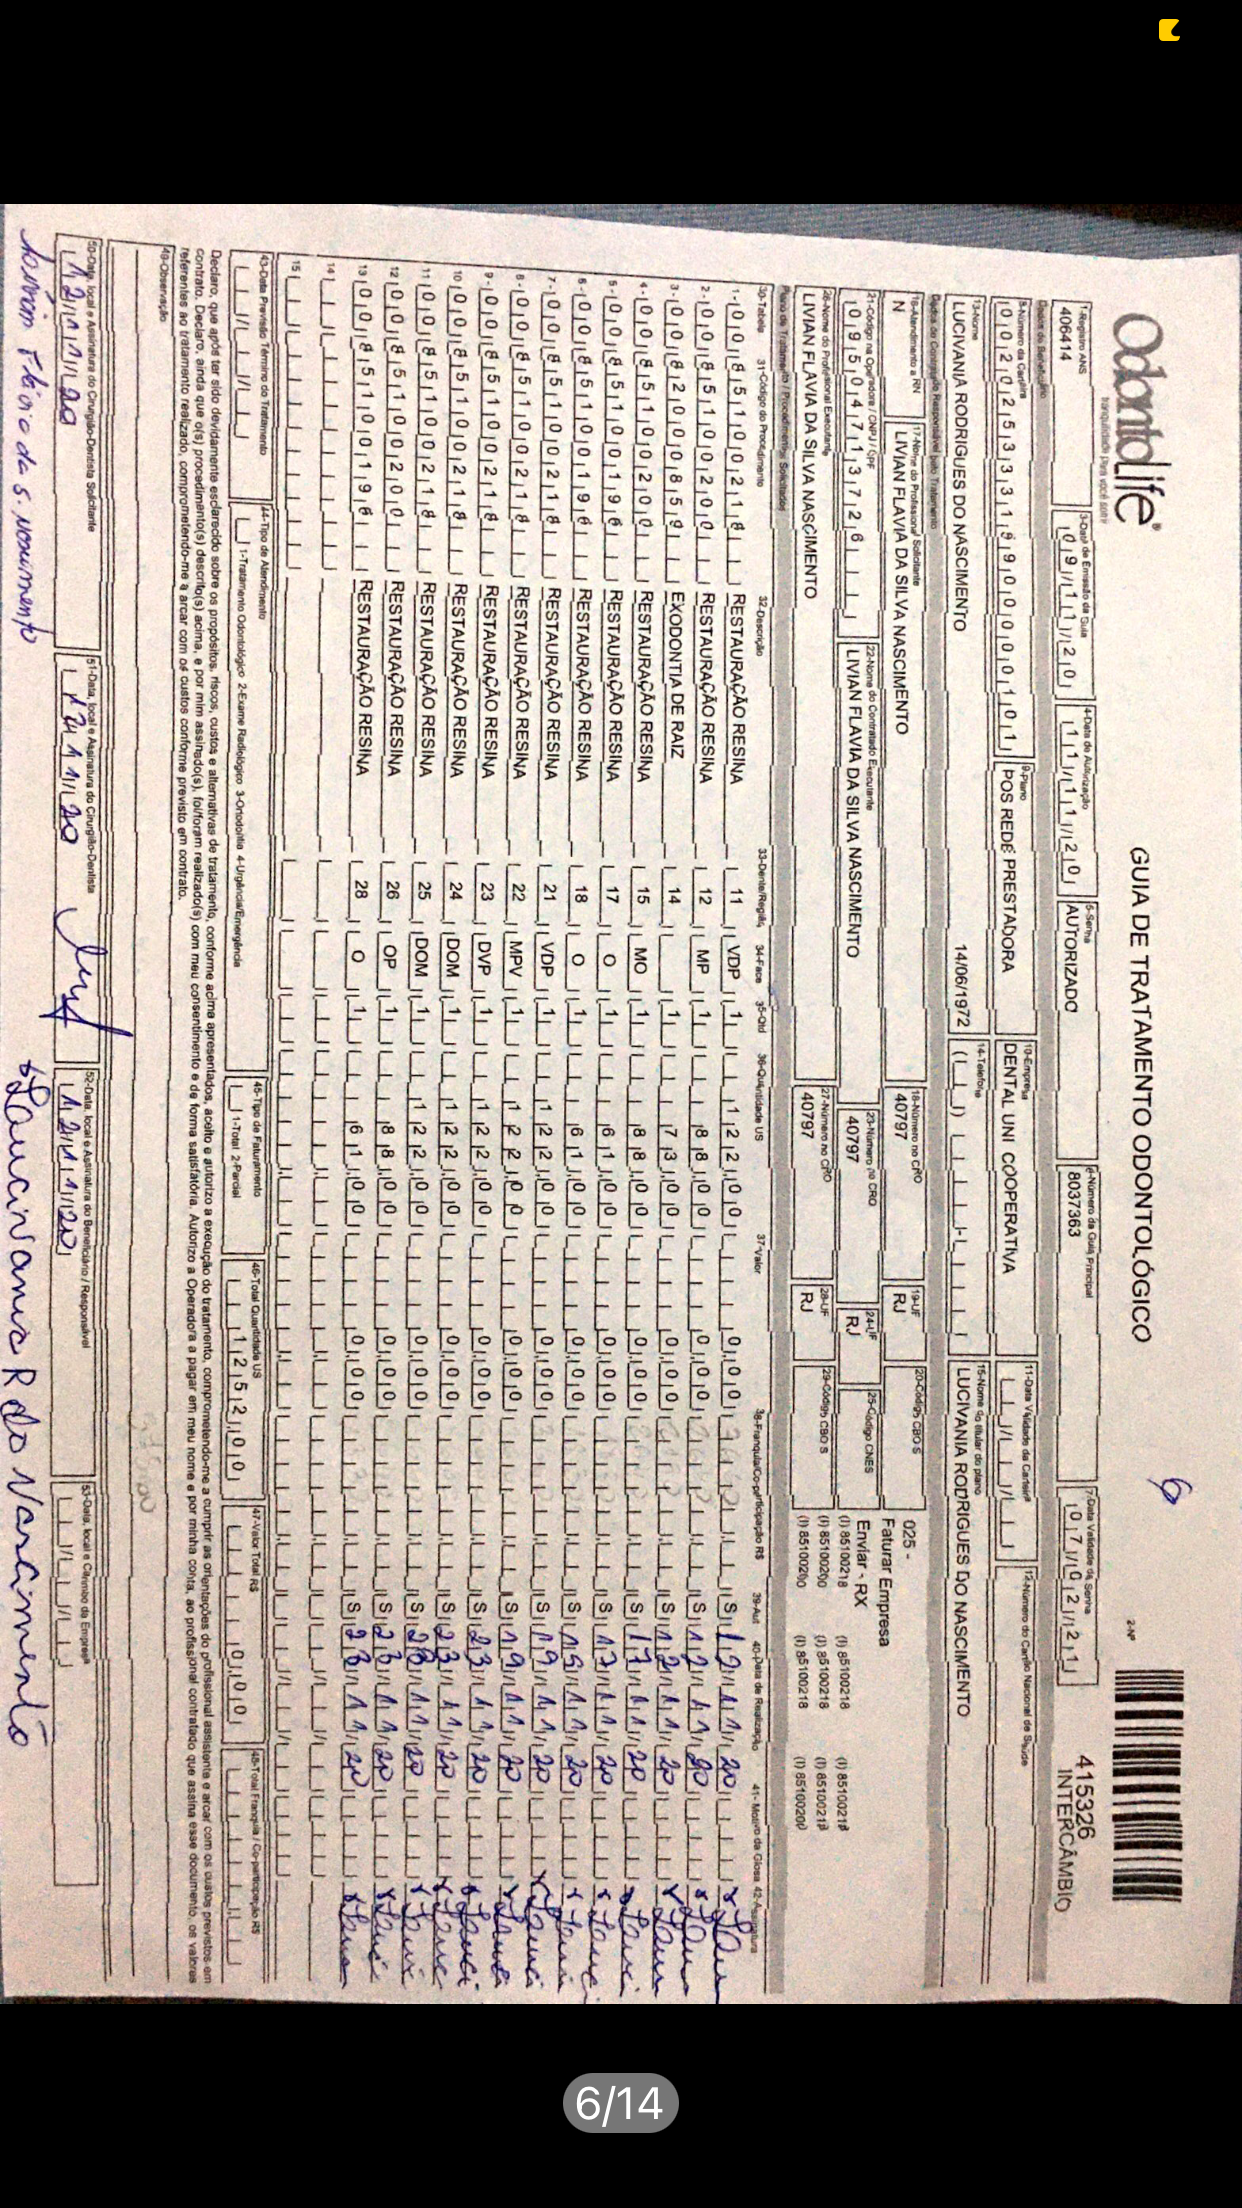 OdontoLife®
tranquilidade para você sorrir
GUIA DE TRATAMENTO ODONTOLÓGICO
6
2-Nº
415326
INTERCÂMBIO
1-Registro ANS
406414
3-Data de Emissão da Guia
09/11/20
4-Data de Autorização
11/11/20
5-Senha
AUTORIZADO
6-Número da Guia Principal
8037363
7-Data Validade da Senha
07/02/21
Dados do Beneficiário
8-Número da Carteira
9-Plano
POS REDE PRESTADORA
10-Empresa
DENTAL UNI COOPERATIVA
11-Data Validade da Carteira
12-Número do Cartão Nacional de Saúde
13-Nome
LUCIVANIA RODRIGUES DO NASCIMENTO
14/06/1972
14-Telefone
15-Nome do titular do plano
LUCIVANIA RODRIGUES DO NASCIMENTO
Dados do Contratado Responsável pelo Tratamento
16-Atendimento a RN
N
17-Nome do Profissional Solicitante
LIVIAN FLAVIA DA SILVA NASCIMENTO
18-Número no CRO
40797
19-UF
RJ
20-Código CBO S
025 -
Faturar Empresa
21-Código na Operadora / CNPJ / CPF
09504713726
22-Nome do Contratado Executante
LIVIAN FLAVIA DA SILVA NASCIMENTO
23-Número no CRO
40797
24-UF
RJ
25-Código CNES
Enviar - RX
(I) 85100218 (I) 85100218 (I) 85100218
(I) 85100200 (I) 85100218 (I) 85100218
(I) 85100200 (I) 85100218 (I) 85100200
26-Nome do Profissional Executante
LIVIAN FLAVIA DA SILVA NASCIMENTO
27-Número no CRO
40797
28-UF
RJ
29-Código CBO S
Plano de Tratamento / Procedimentos Solicitados
30-Tabela 31-Código do Procedimento 32-Descrição 33-Dente/Região 34-Face 35-Qtd 36-Quantidade US 37-Valor 38-Franquia/Co-participação R$ 39-Aut 40-Data de Realização 41-Motivo da Glosa 42-Assinatura
1- 00 85100218 RESTAURAÇÃO RESINA 11 VDP 1 122,00 0,00 S 12/11/20
2- 00 85100200 RESTAURAÇÃO RESINA 12 MP 1 88,00 0,00 S 12/11/20
3- 00 82000859 EXODONTIA DE RAIZ 14 1 73,00 0,00 S 12/11/20
4- 00 85100200 RESTAURAÇÃO RESINA 15 MO 1 88,00 0,00 S 17/11/20
5- 00 85100196 RESTAURAÇÃO RESINA 17 O 1 61,00 0,00 S 17/11/20
6- 00 85100196 RESTAURAÇÃO RESINA 18 O 1 61,00 0,00 S 15/11/20
7- 00 85100218 RESTAURAÇÃO RESINA 21 VDP 1 122,00 0,00 S 19/11/20
8- 00 85100218 RESTAURAÇÃO RESINA 22 MPV 1 122,00 0,00 S 19/11/20
9- 00 85100218 RESTAURAÇÃO RESINA 23 DVP 1 122,00 0,00 S 23/11/20
10 00 85100218 RESTAURAÇÃO RESINA 24 DOM 1 122,00 0,00 S 23/11/20
11 00 85100218 RESTAURAÇÃO RESINA 25 DOM 1 122,00 0,00 S 28/11/20
12 00 85100200 RESTAURAÇÃO RESINA 26 OP 1 88,00 0,00 S 26/11/20
13 00 85100196 RESTAURAÇÃO RESINA 28 O 1 61,00 0,00 S 28/11/20
14
15
43-Data Previsão Término do Tratamento
44-Tipo de Atendimento
1-Tratamento Odontológico 2-Exame Radiológico 3-Ortodontia 4-Urgência/Emergência
45-Tipo de Faturamento
1-Total 2-Parcial
46-Total Quantidade US
1252,00
47-Valor Total R$
0,00
48-Total Franquia / Co-participação R$
Declaro, que após ter sido devidamente esclarecido sobre os propósitos, riscos, custos e alternativas de tratamento, conforme acima apresentados, aceito e autorizo a execução do tratamento, comprometendo-me a cumprir as orientações do profissional assistente e arcar com os custos previstos em
contrato. Declaro, ainda que o(s) procedimento(s) descrito(s) acima, e por mim assinado(s), foi/foram realizado(s) com meu consentimento e de forma satisfatória. Autorizo a Operadora a pagar em meu nome e por minha conta, ao profissional contratado que assina esse documento, os valores
referentes ao tratamento realizado, comprometendo-me a arcar com os custos conforme previsto em contrato.
49-Observação
50-Data, local e Assinatura do Cirurgião-Dentista Solicitante
12/11/20
51-Data, local e Assinatura do Cirurgião-Dentista
12/11/20
52-Data, local e Assinatura do Beneficiário / Responsável
12/11/20
53-Data, local e Carimbo da Empresa
Livian Flávia da S. nascimento
Lucivania R do Nascimento
6/14